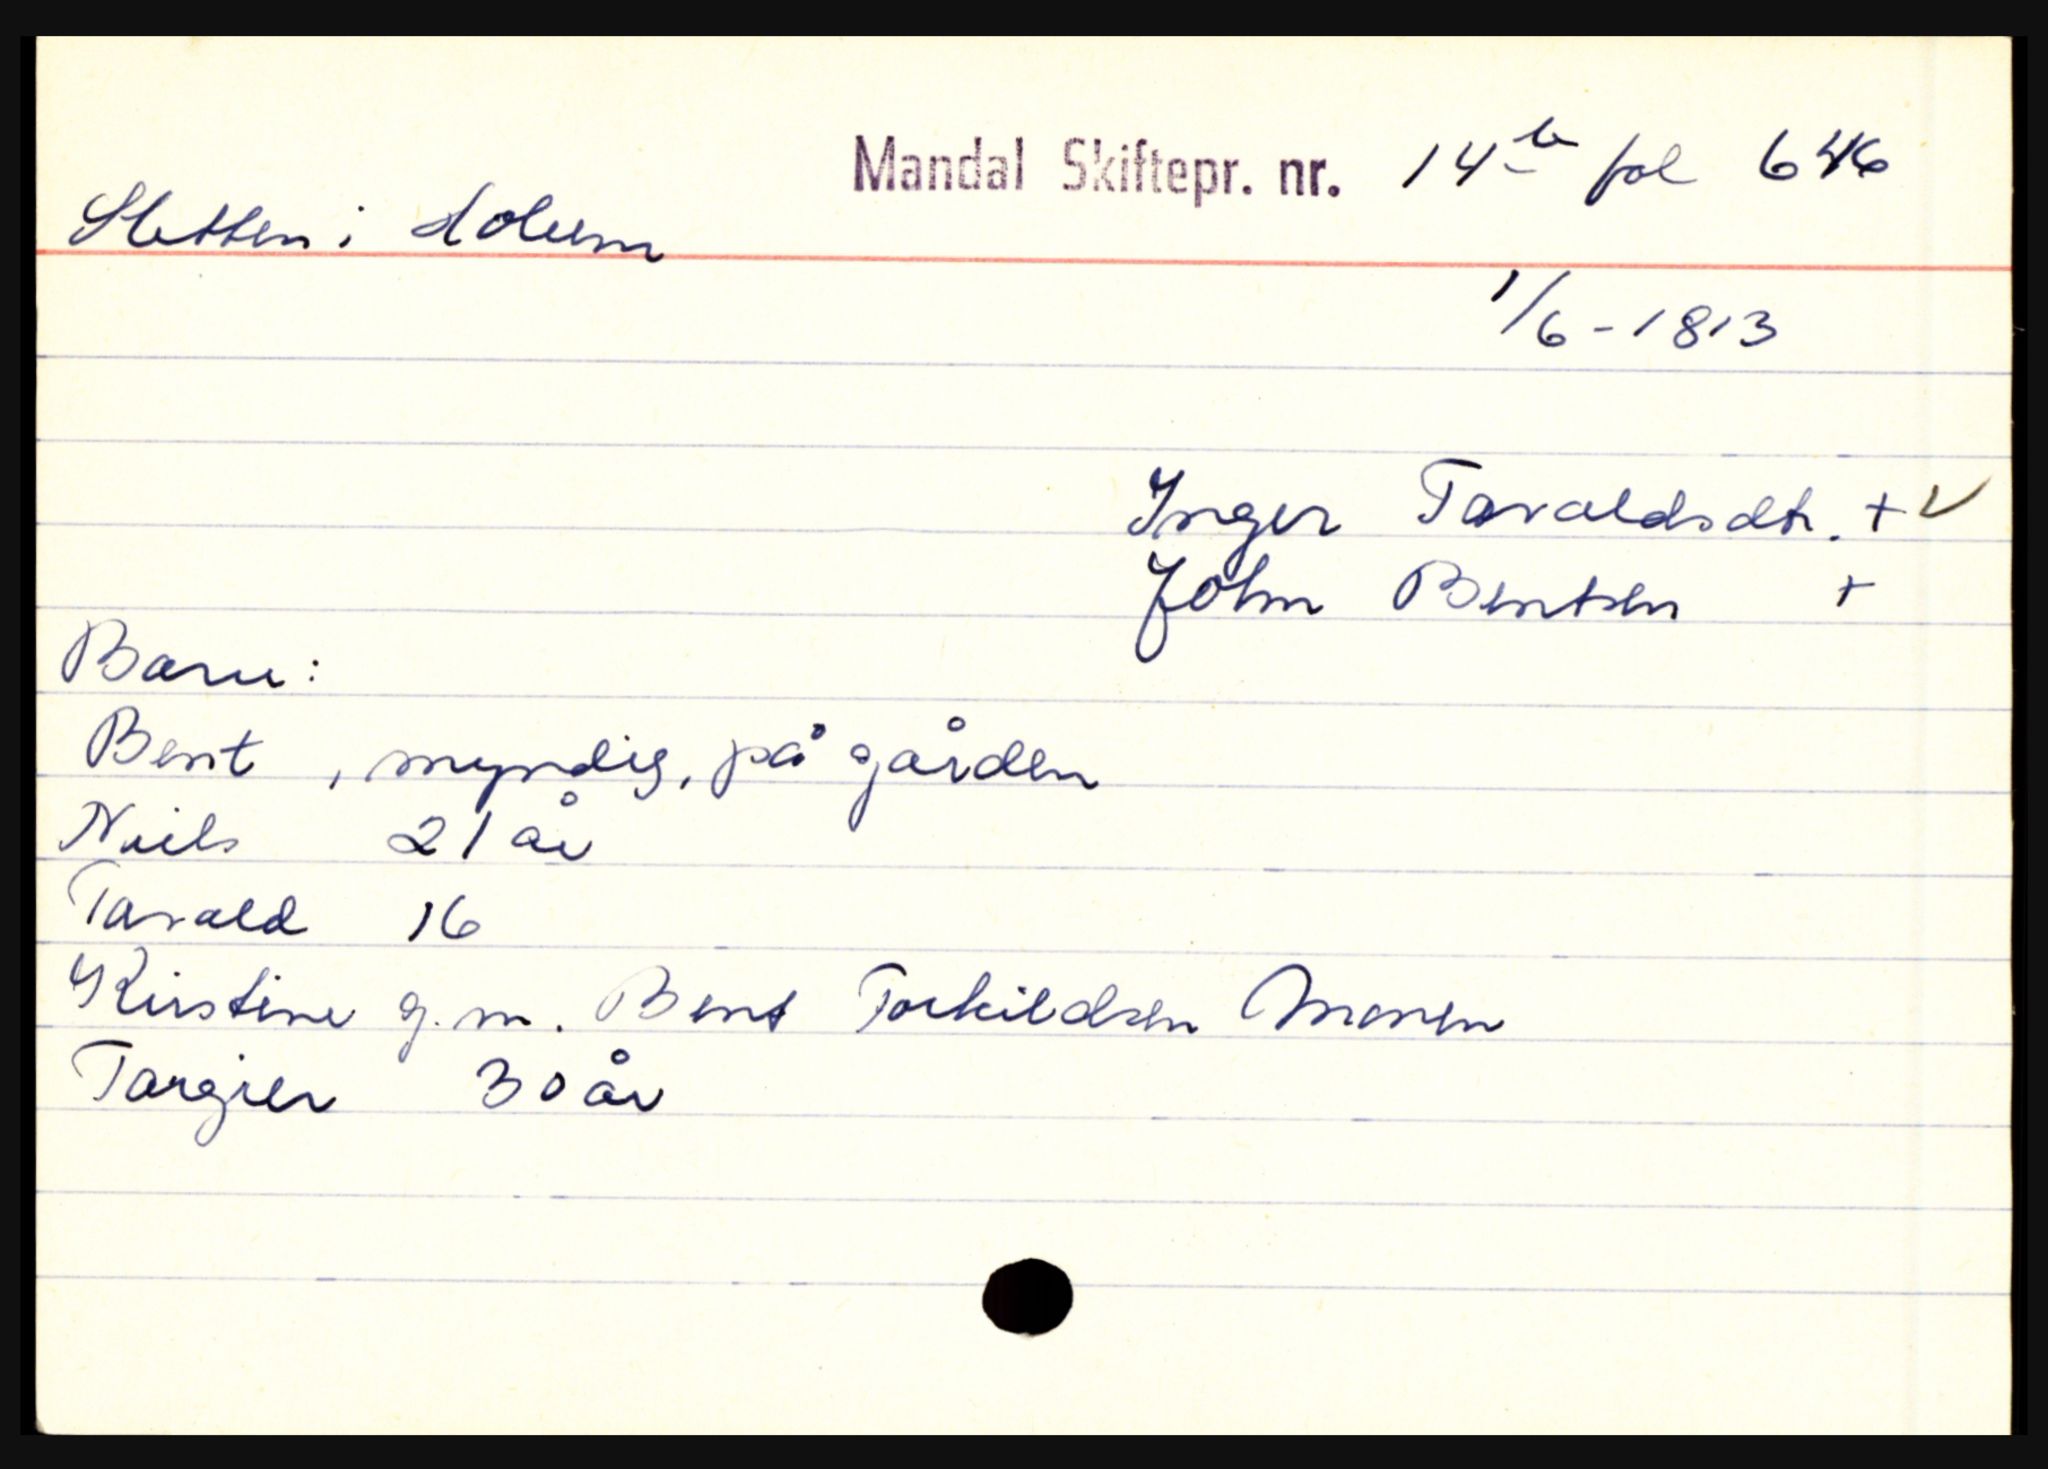 Mandal Skiftepr. nr. 14 b fol 646
Sletten i Holum
1/6-1813
Inger Taraldsdtr. + v
John Bentsen +
Barn:
Bent , myndig, på gården
Niels 21 år
Tarald 16
Kirstine g.m. Bent Torkildsen Monen
Targier 30 år